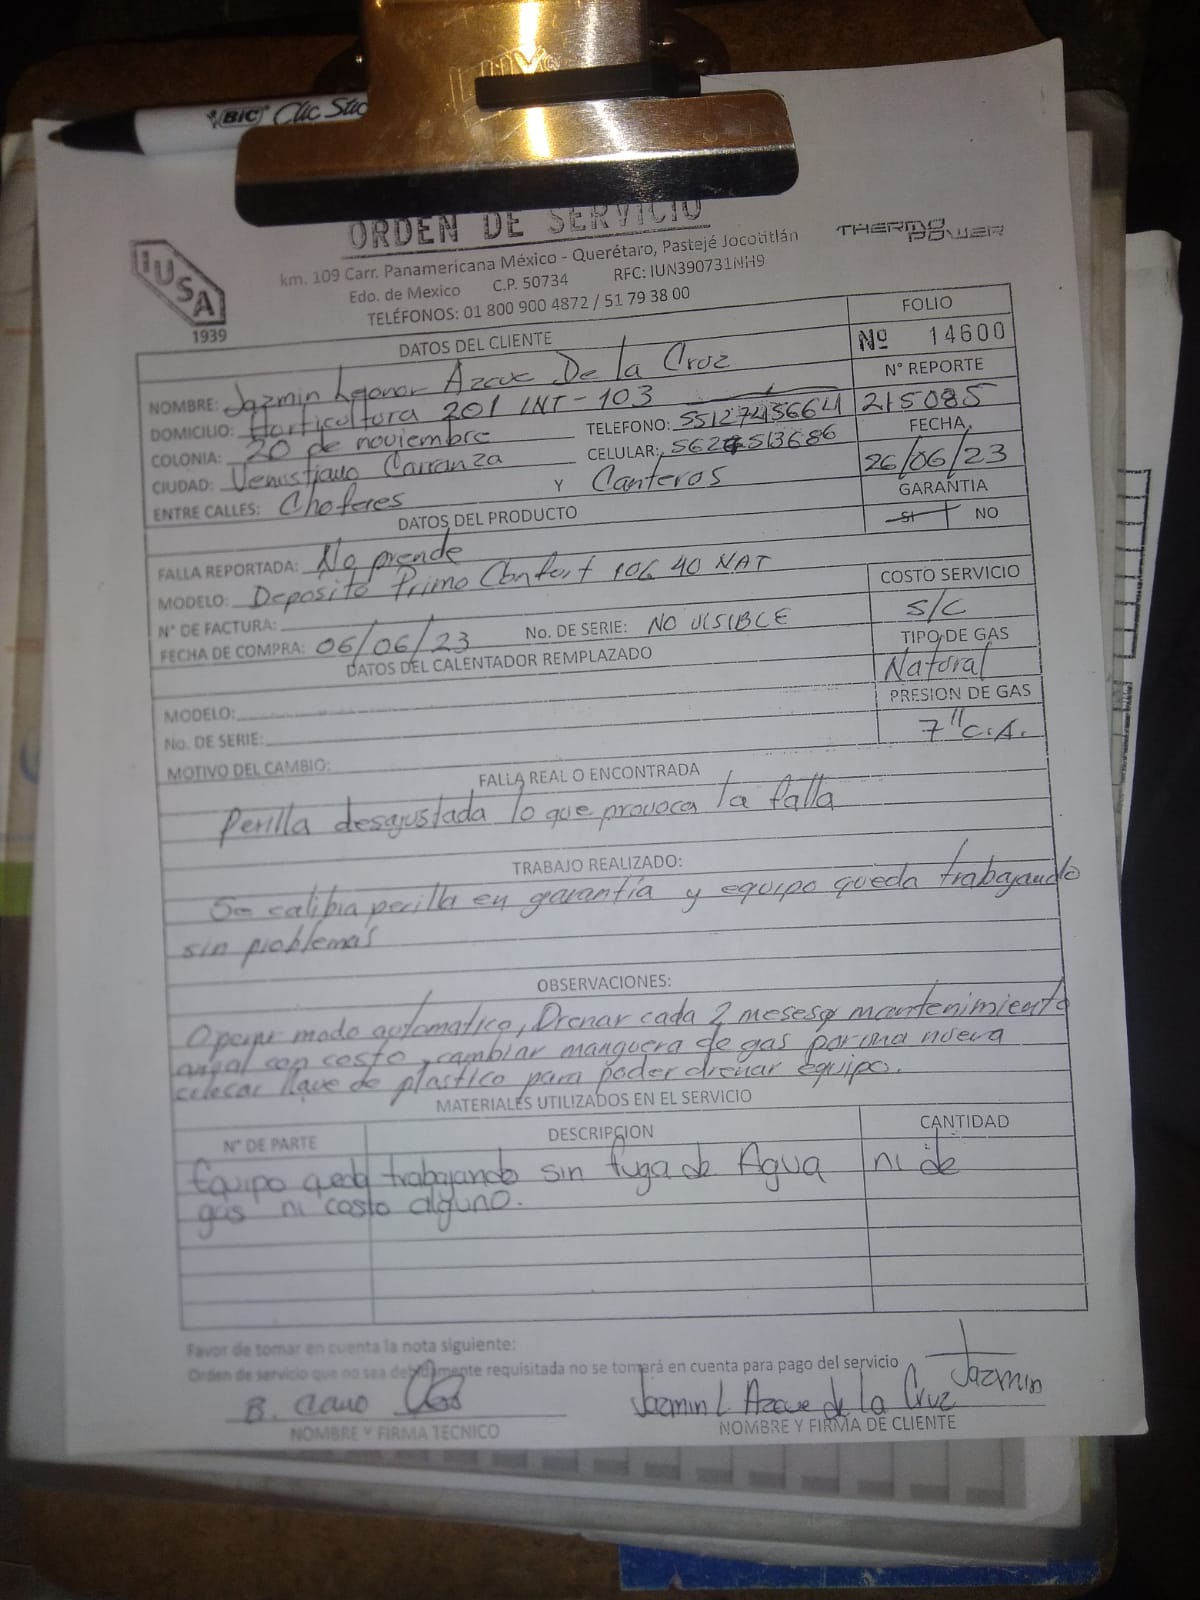 BIC Clic Stic
ORDEN DE SERVICIO
IUSA
1939
THERMO POWER
km. 109 Carr. Panamericana México - Querétaro, Pastejé Jocotitlán
Edo. de Mexico C.P. 50734 RFC: IUN390731NH9
TELÉFONOS: 01 800 900 4872 / 51 79 38 00
DATOS DEL CLIENTE
FOLIO
Nº 14600
NOMBRE: Jazmin Leonor Azcue De la Cruz
N° REPORTE
215085
DOMICILIO: Horticultura 201 INT-103
COLONIA: 20 de noviembre
TELEFONO:
CIUDAD: Venustiano Carranza
CELULAR:
FECHA
26/06/23
ENTRE CALLES: Choferes Y Canteros
GARANTIA
SI NO
DATOS DEL PRODUCTO
FALLA REPORTADA: No prende
MODELO: Deposito Primo Confort 106 40 NAT
COSTO SERVICIO
S/C
N° DE FACTURA:
FECHA DE COMPRA: 06/06/23 No. DE SERIE: NO VISIBLE
TIPO DE GAS
Natural
DATOS DEL CALENTADOR REMPLAZADO
PRESION DE GAS
7" C.A.
MODELO:
No. DE SERIE:
MOTIVO DEL CAMBIO:
FALLA REAL O ENCONTRADA
Perilla desajustada lo que provoca la falla
TRABAJO REALIZADO:
Se calibra perilla en garantía y equipo queda trabajando
sin problemas
OBSERVACIONES:
Operar modo automatico, Drenar cada 2 meses mantenimiento
anual con costo, cambiar manguera de gas por una nueva
colocar llave de plastico para poder drenar equipo.
MATERIALES UTILIZADOS EN EL SERVICIO
N° DE PARTE DESCRIPCION CANTIDAD
Equipo queda trabajando sin fuga de Agua ni de
gas ni costo alguno.
Favor de tomar en cuenta la nota siguiente:
Orden de servicio que no sea debidamente requisitada no se tomará en cuenta para pago del servicio
B. Cano
Jazmin L. Azcue de la Cruz Jazmin
NOMBRE Y FIRMA TECNICO
NOMBRE Y FIRMA DE CLIENTE